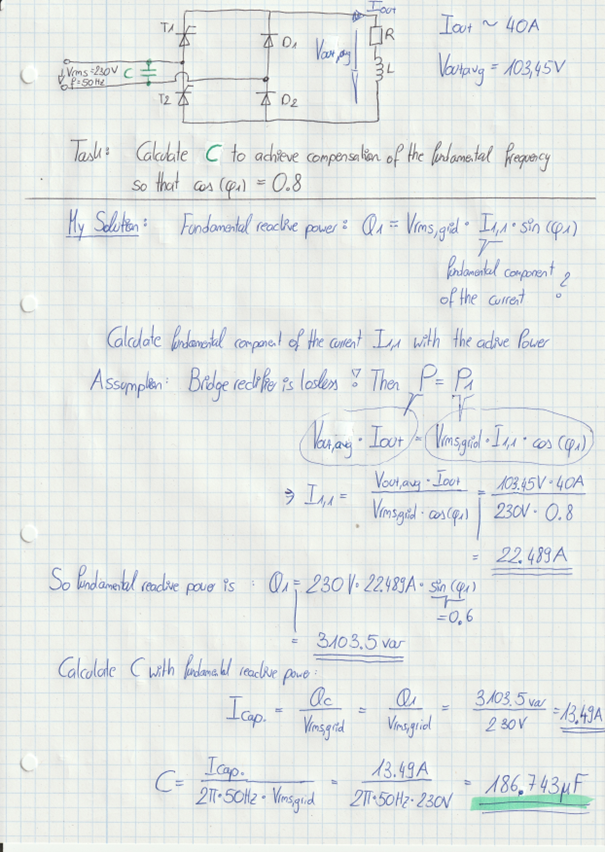 Iout
T1
D1
Vout,avg
R
L
Iout ~ 40A
Vout,avg = 103,45V
Vrms=230V
f=50Hz
C
T2
D2
Task: Calculate C to achieve compensation of the fundamental frequency
so that cos(φ1) = 0.8
My Solution: Fundamental reactive power: Q1 = Vrms,grid · I1,1 · sin(φ1)
fundamental component
of the current ?
Calculate fundamental component of the current I1,1 with the active Power
Assumption: Bridge rectifier is losless! Then P = P1
Vout,avg · Iout = Vrms,grid · I1,1 · cos(φ1)
⇒ I1,1 = Vout,avg · Iout / Vrms,grid · cos(φ1) = 103.45V · 40A / 230V · 0.8
= 22.489A
So fundamental reactive power is: Q1 = 230V · 22.489A · sin(φ1)
=0.6
= 3103.5 var
Calculate C with fundamental reactive power:
ICap. = Qc / Vrms,grid = Q1 / Vrms,grid = 3103.5 var / 230V = 13.49A
C = ICap. / 2π·50Hz·Vrms,grid = 13.49A / 2π·50Hz·230V = 186.743µF